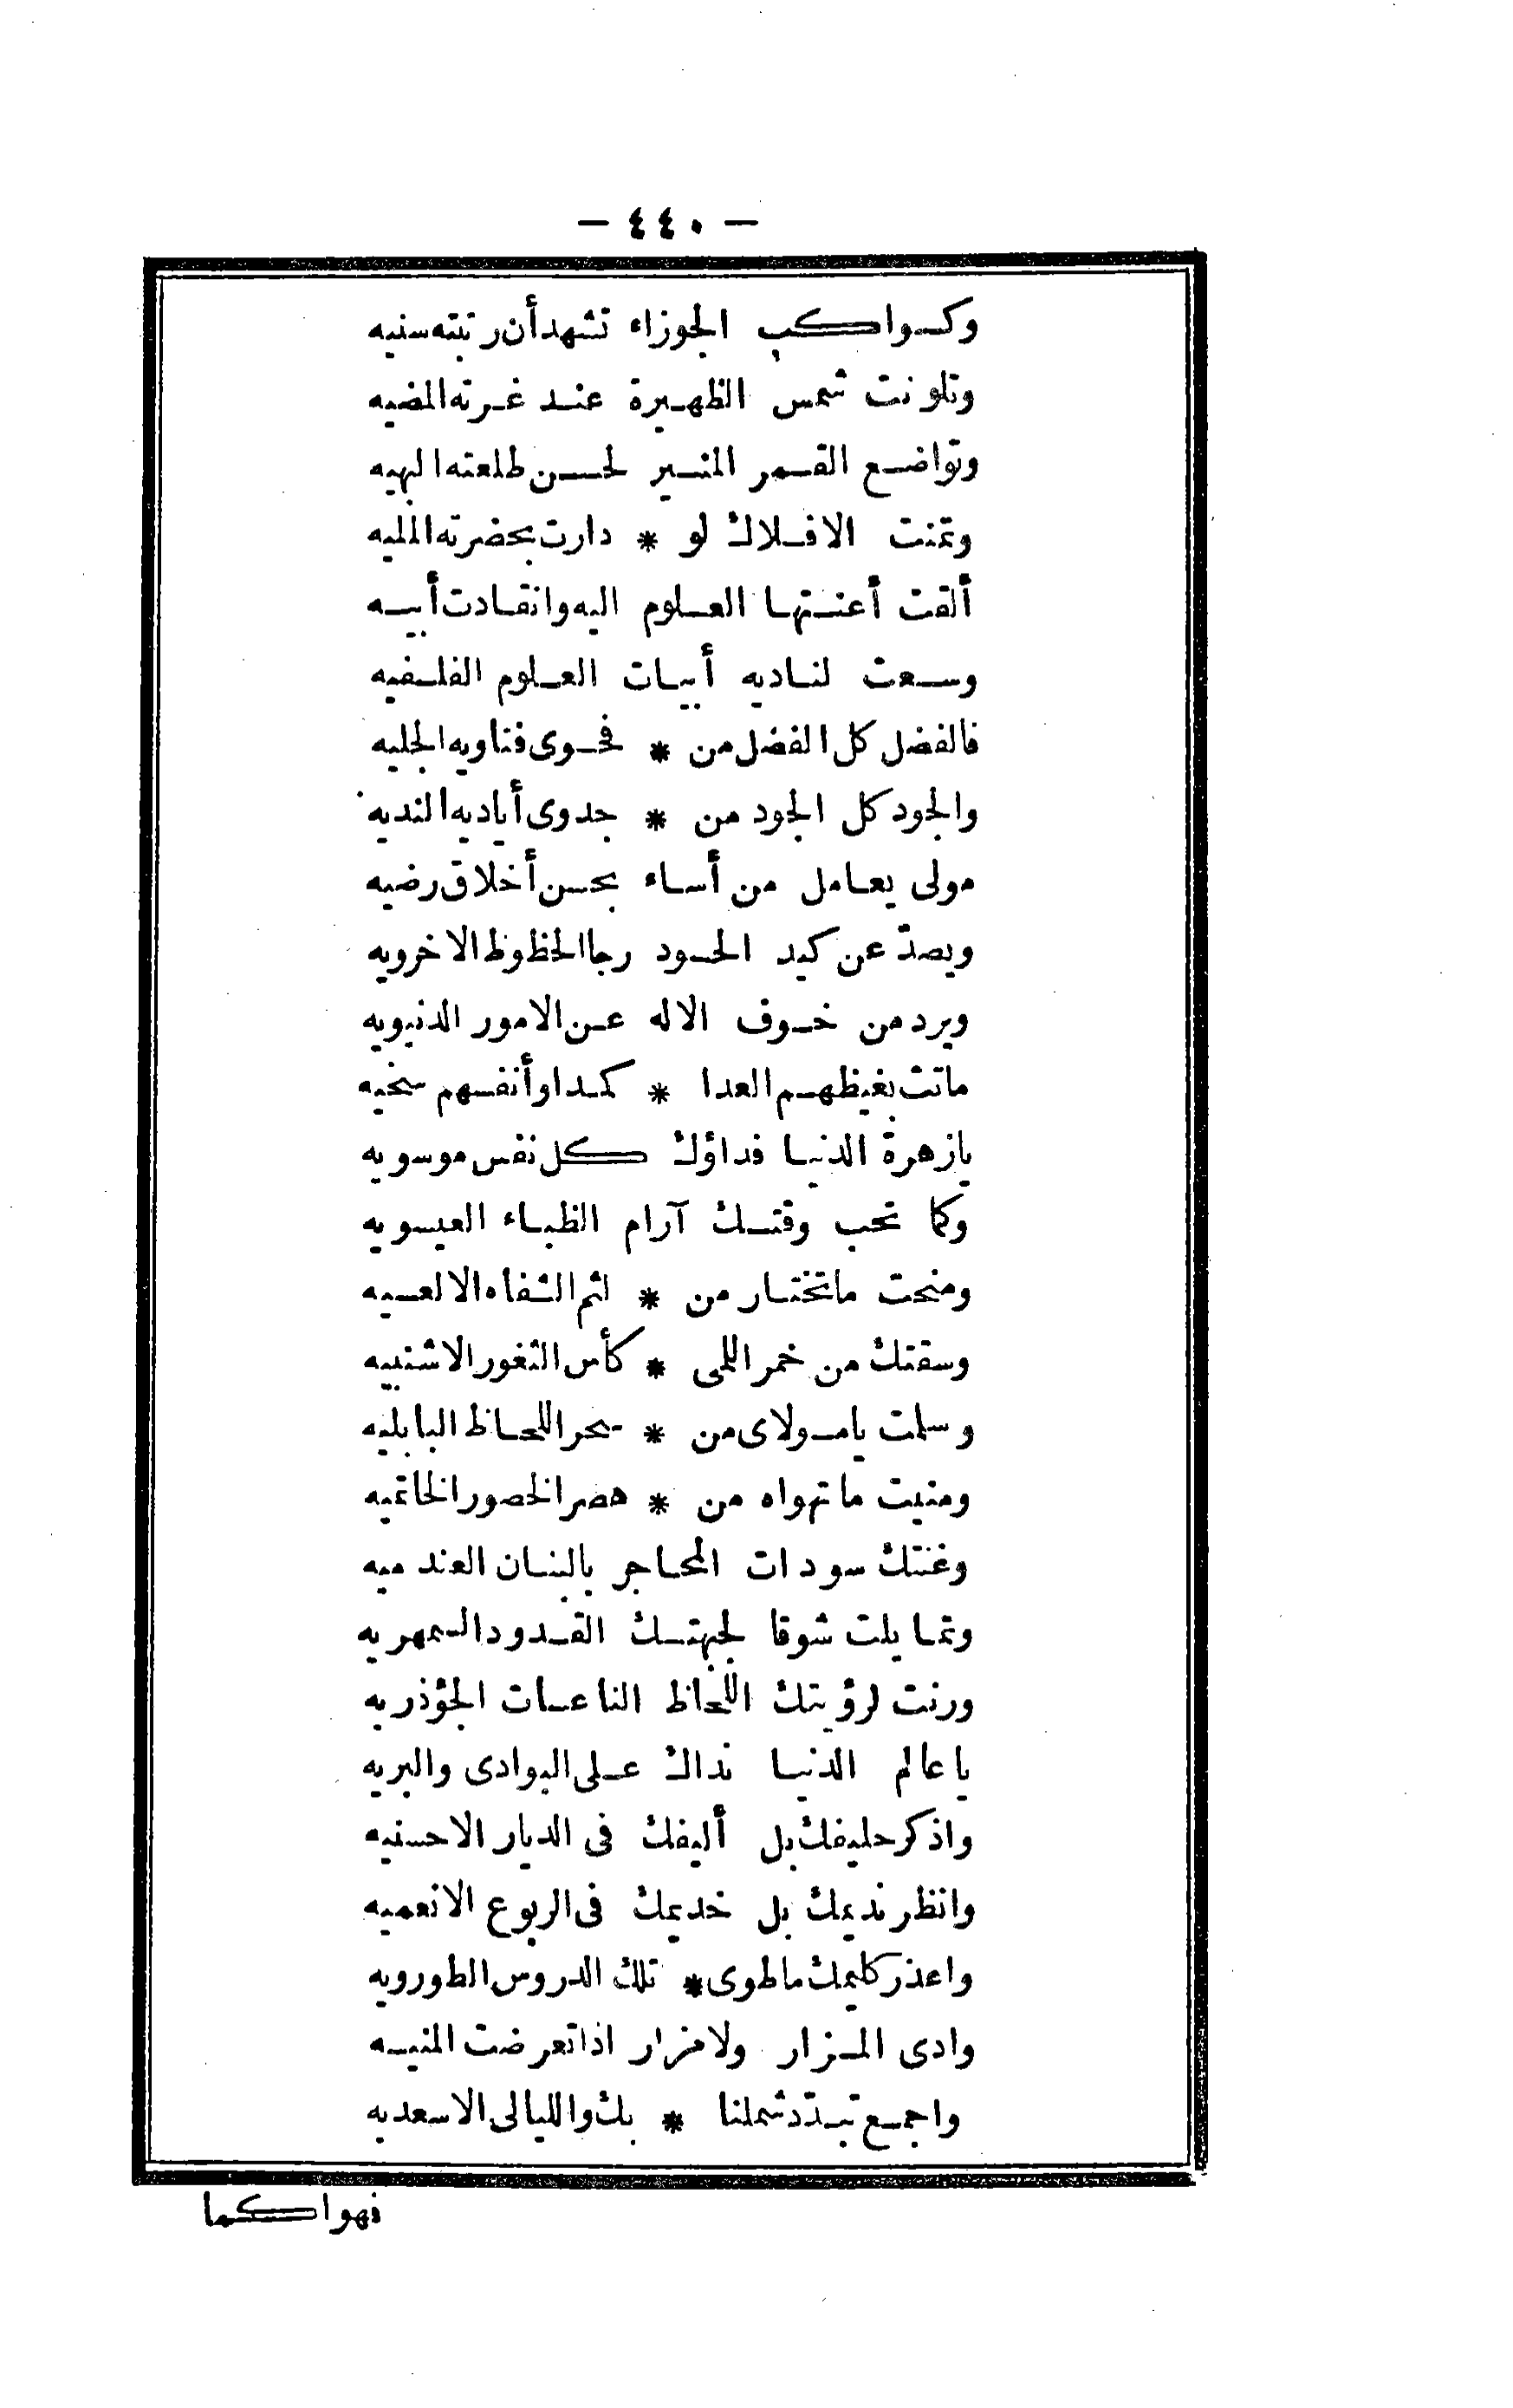 — ٤٤٠ —
وكواكب الجوزاء تشهد أن رتبته سنيه
وتلونت شمس الظهيرة عند غرته المضيه
وتواضع القمر المنير لحسن طلعته البهيه
وتمنت الافلاك لو * دارت بحضرته المليه
ألقت أعنتها العلوم اليه وانقادت أبيه
وسعت لناديه أبيات العلوم الفلسفيه
فالفضل كل الفضل من * فحوى فتاويه الجليه
والجود كل الجود من * جدوى أياديه النديه
مولى يعامل من أساء بحسن أخلاق رضيه
ويصدّ عن كيد الحسود رجا الحظوظ الاخرويه
ويرد من خوف الاله عن الامور الدنيويه
ماتت بغيظهم العدا * كمدا وأنفسهم سخيه
يا زهرة الدنيا فداؤك كل نفس موسويه
وكما تحب وقتك آرام الظباء العيسويه
ومنحت ما تختار من * لثم الشفاه الالعسيه
وسقتك من خمر اللمى * كأس الثغور الاشنبيه
وسلمت يا مولاى من * سحر اللحاظ البابليه
ومنيت ما تهواه من * هصر الخصور الخاتميه
وغنتك سودات المحاجر بالبنان العندميه
وتمايلت شوقا لجبهتك القدود السمهريه
ورنت لرؤيتك اللحاظ الناعسات الجؤذريه
يا عالم الدنيا نداك على البوادى والبريه
واذكر حليفك بل أليفك فى الديار الاحسنيه
وانظر نديمك بل خديمك فى الربوع الانعميه
واعذر كليمك ما طوى * تلك الدروس الطورويه
وادى المزار ولا مزار اذا تعرضت المنيه
واجمع تبدّد شملنا * بك والليالى الاسعديه
فهواكما